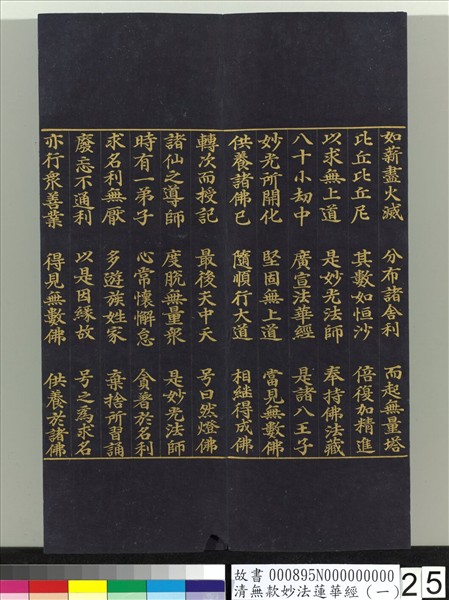 如薪盡火滅 分布諸舍利 而起無量塔
比丘比丘尼 其數如恒沙 倍復加精進
以求無上道 是妙光法師 奉持佛法藏
八十小劫中 廣宣法華經 是諸八王子
妙光所開化 堅固無上道 當見無數佛
供養諸佛已 隨順行大道 相繼得成佛
轉次而授記 最後天中天 号曰然燈佛
諸仙之導師 度脫無量衆 是妙光法師
時有一弟子 心常懷懈怠 貪著於名利
求名利無厭 多遊族姓家 棄捨所習誦
廢忘不通利 以是因緣故 号之為求名
亦行衆善業 得見無數佛 供養於諸佛
故書 000895N000000000
清無款妙法蓮華經(一)
25